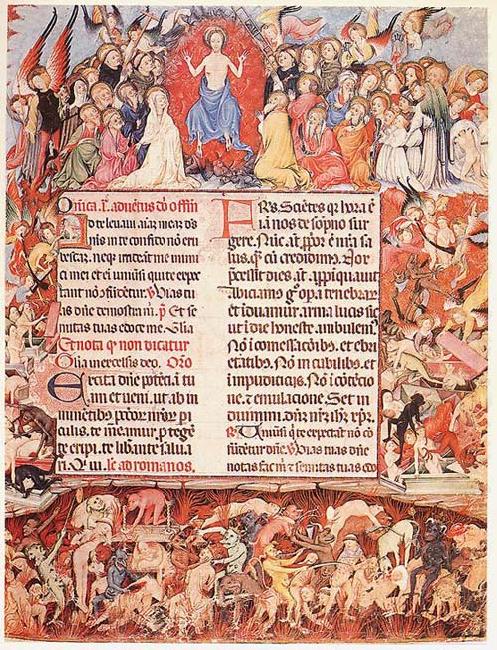 Onica. i. aduetus do offm
Ad te leuaui aiaz meaz ds
ms in te confido no eru
bescaz. neqz irrideat me inimi
ci mei et ei uniusi qui te expe
tant no 9fudetur. V Uias tu
as dne demostra m. p Et se
mitas tuas edoce me. Glia
Et nota qr non dicatur
Glia in excelsis deo. Oro
Excita dne potecia tu
am et ueni. ut ab in
minetibz pctor nror pi
culis. te meamur p tege
te eripi. te libante salua
ri Qui. le ad romanos.
FRs. Scietes qr hora e
ia nos de sopno sur
gere. Nuc. at. ppor e nra sa
lus. qz cu credidim9. Nox
pcessit dies. at. appiquauit
Abiciam9 go opa tenebrar
et iduamur arma lucis sic
ut i die honeste ambulem9.
No i comessacoibz. et ebri
etatibz. No in cubilibz. et
impudiciciis. No i cotecio
ne. et emulacione Set in
duimini. dnz nrz ihz xpz.
R Uniusi qui te expectat no co
fudetur dne. V Uias tuas dne
notas fac m et semitas tuas edo